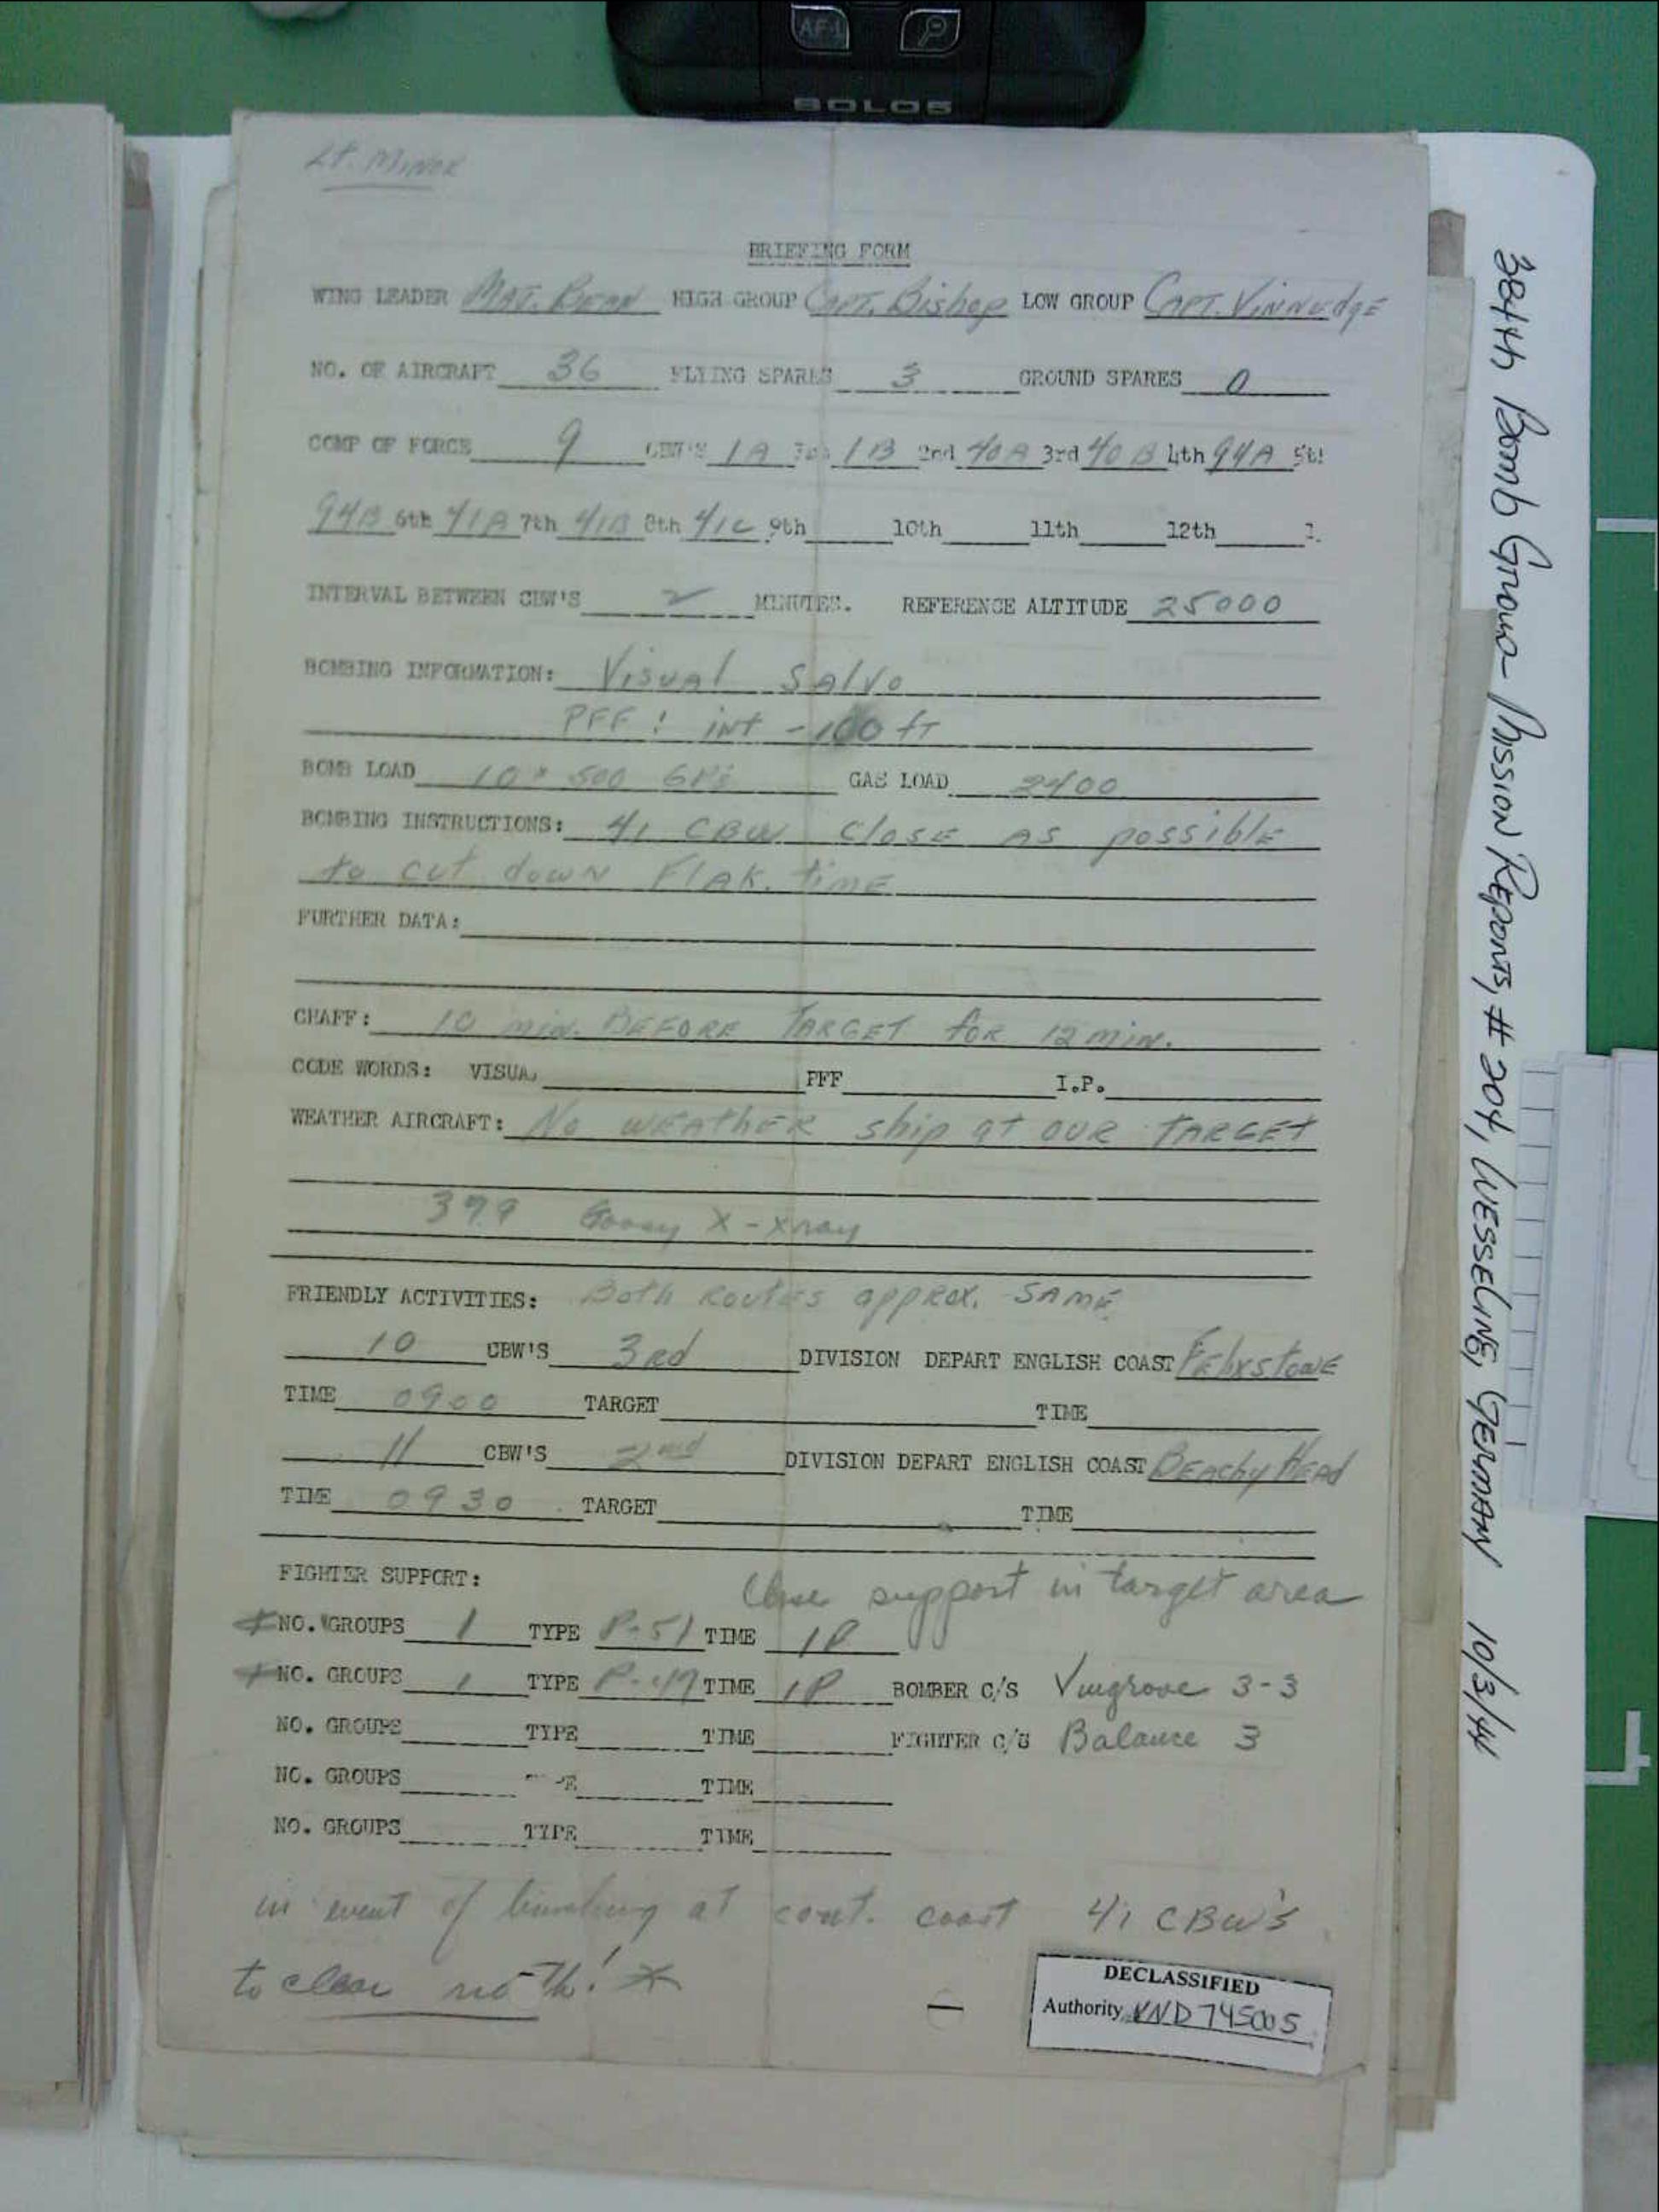 AF-L
SOLOS
Lt. Minor
BRIEFING FORM
WING LEADER Maj. Bean HIGH GROUP Capt. Bishop LOW GROUP Capt. Vinnedge
NO. OF AIRCRAFT 36 FLYING SPARES 3 GROUND SPARES 0
COMP OF FORCE 9 CBW'S 1A 1B 2nd 40A 3rd 40B 4th 94A
94B 6th 41A 7th 41B 8th 41C 9th 10th 11th 12th
INTERVAL BETWEEN CBW'S 2 MINUTES. REFERENCE ALTITUDE 25000
BOMBING INFORMATION: Visual Salvo
PFF: int - 100 ft
BOMB LOAD 10 x 500 GPs GAS LOAD 2400
BOMBING INSTRUCTIONS: 41 CBW close as possible
to cut down Flak. time
FURTHER DATA:
CHAFF: 10 min. BEFORE TARGET for 12 min.
CODE WORDS: VISUAL PFF I.P.
WEATHER AIRCRAFT: No weather ship at our target
379 X-Xray
FRIENDLY ACTIVITIES: Both Routes approx. same
10 CBW'S 3rd DIVISION DEPART ENGLISH COAST Felixstowe
TIME 0900 TARGET TIME
11 CBW'S 2nd DIVISION DEPART ENGLISH COAST Beachy Head
TIME 0930 TARGET TIME
FIGHTER SUPPORT: Close support in target area
*NO. GROUPS 1 TYPE P-51 TIME IP
*NO. GROUPS 1 TYPE P-47 TIME IP BOMBER C/S Vingrove 3-3
NO. GROUPS TYPE TIME FIGHTER C/S Balance 3
NO. GROUPS TIME
NO. GROUPS TYPE TIME
in event of bunching at cont. coast 41 CBW's
to clear north! *
DECLASSIFIED
Authority NND 745005
384th Bomb Group Mission Reports, # 204, WESSELING, GERMANY 10/3/44